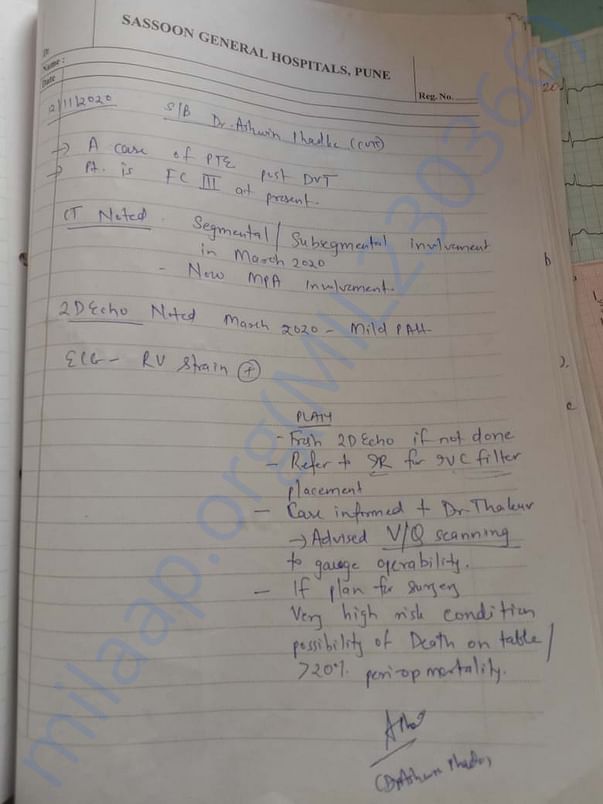 SASSOON GENERAL HOSPITALS, PUNE
Dr
Name :
Date
Reg. No.
2/11/2020 S/B Dr. Ashwin Phadke (CVTS)
→ A case of PTE post DVT
→ Pt. is FC III at present.
CT Noted. Segmental / Subsegmental involvement
in March 2020
- Now MPA involvement.
2D Echo Noted March 2020 - Mild PAH
ECG - RV strain +
PLAN
- Fresh 2D Echo if not done
- Refer to IR for IVC filter
placement
- Case informed to Dr. Thakur
→ Advised V/Q scanning
to gauge operability.
- If plan for surgery
Very high risk condition
possibility of Death on table /
>20% peri-op mortality.
(Dr Ashwin Phadke)
milaap.org(MIL230366)